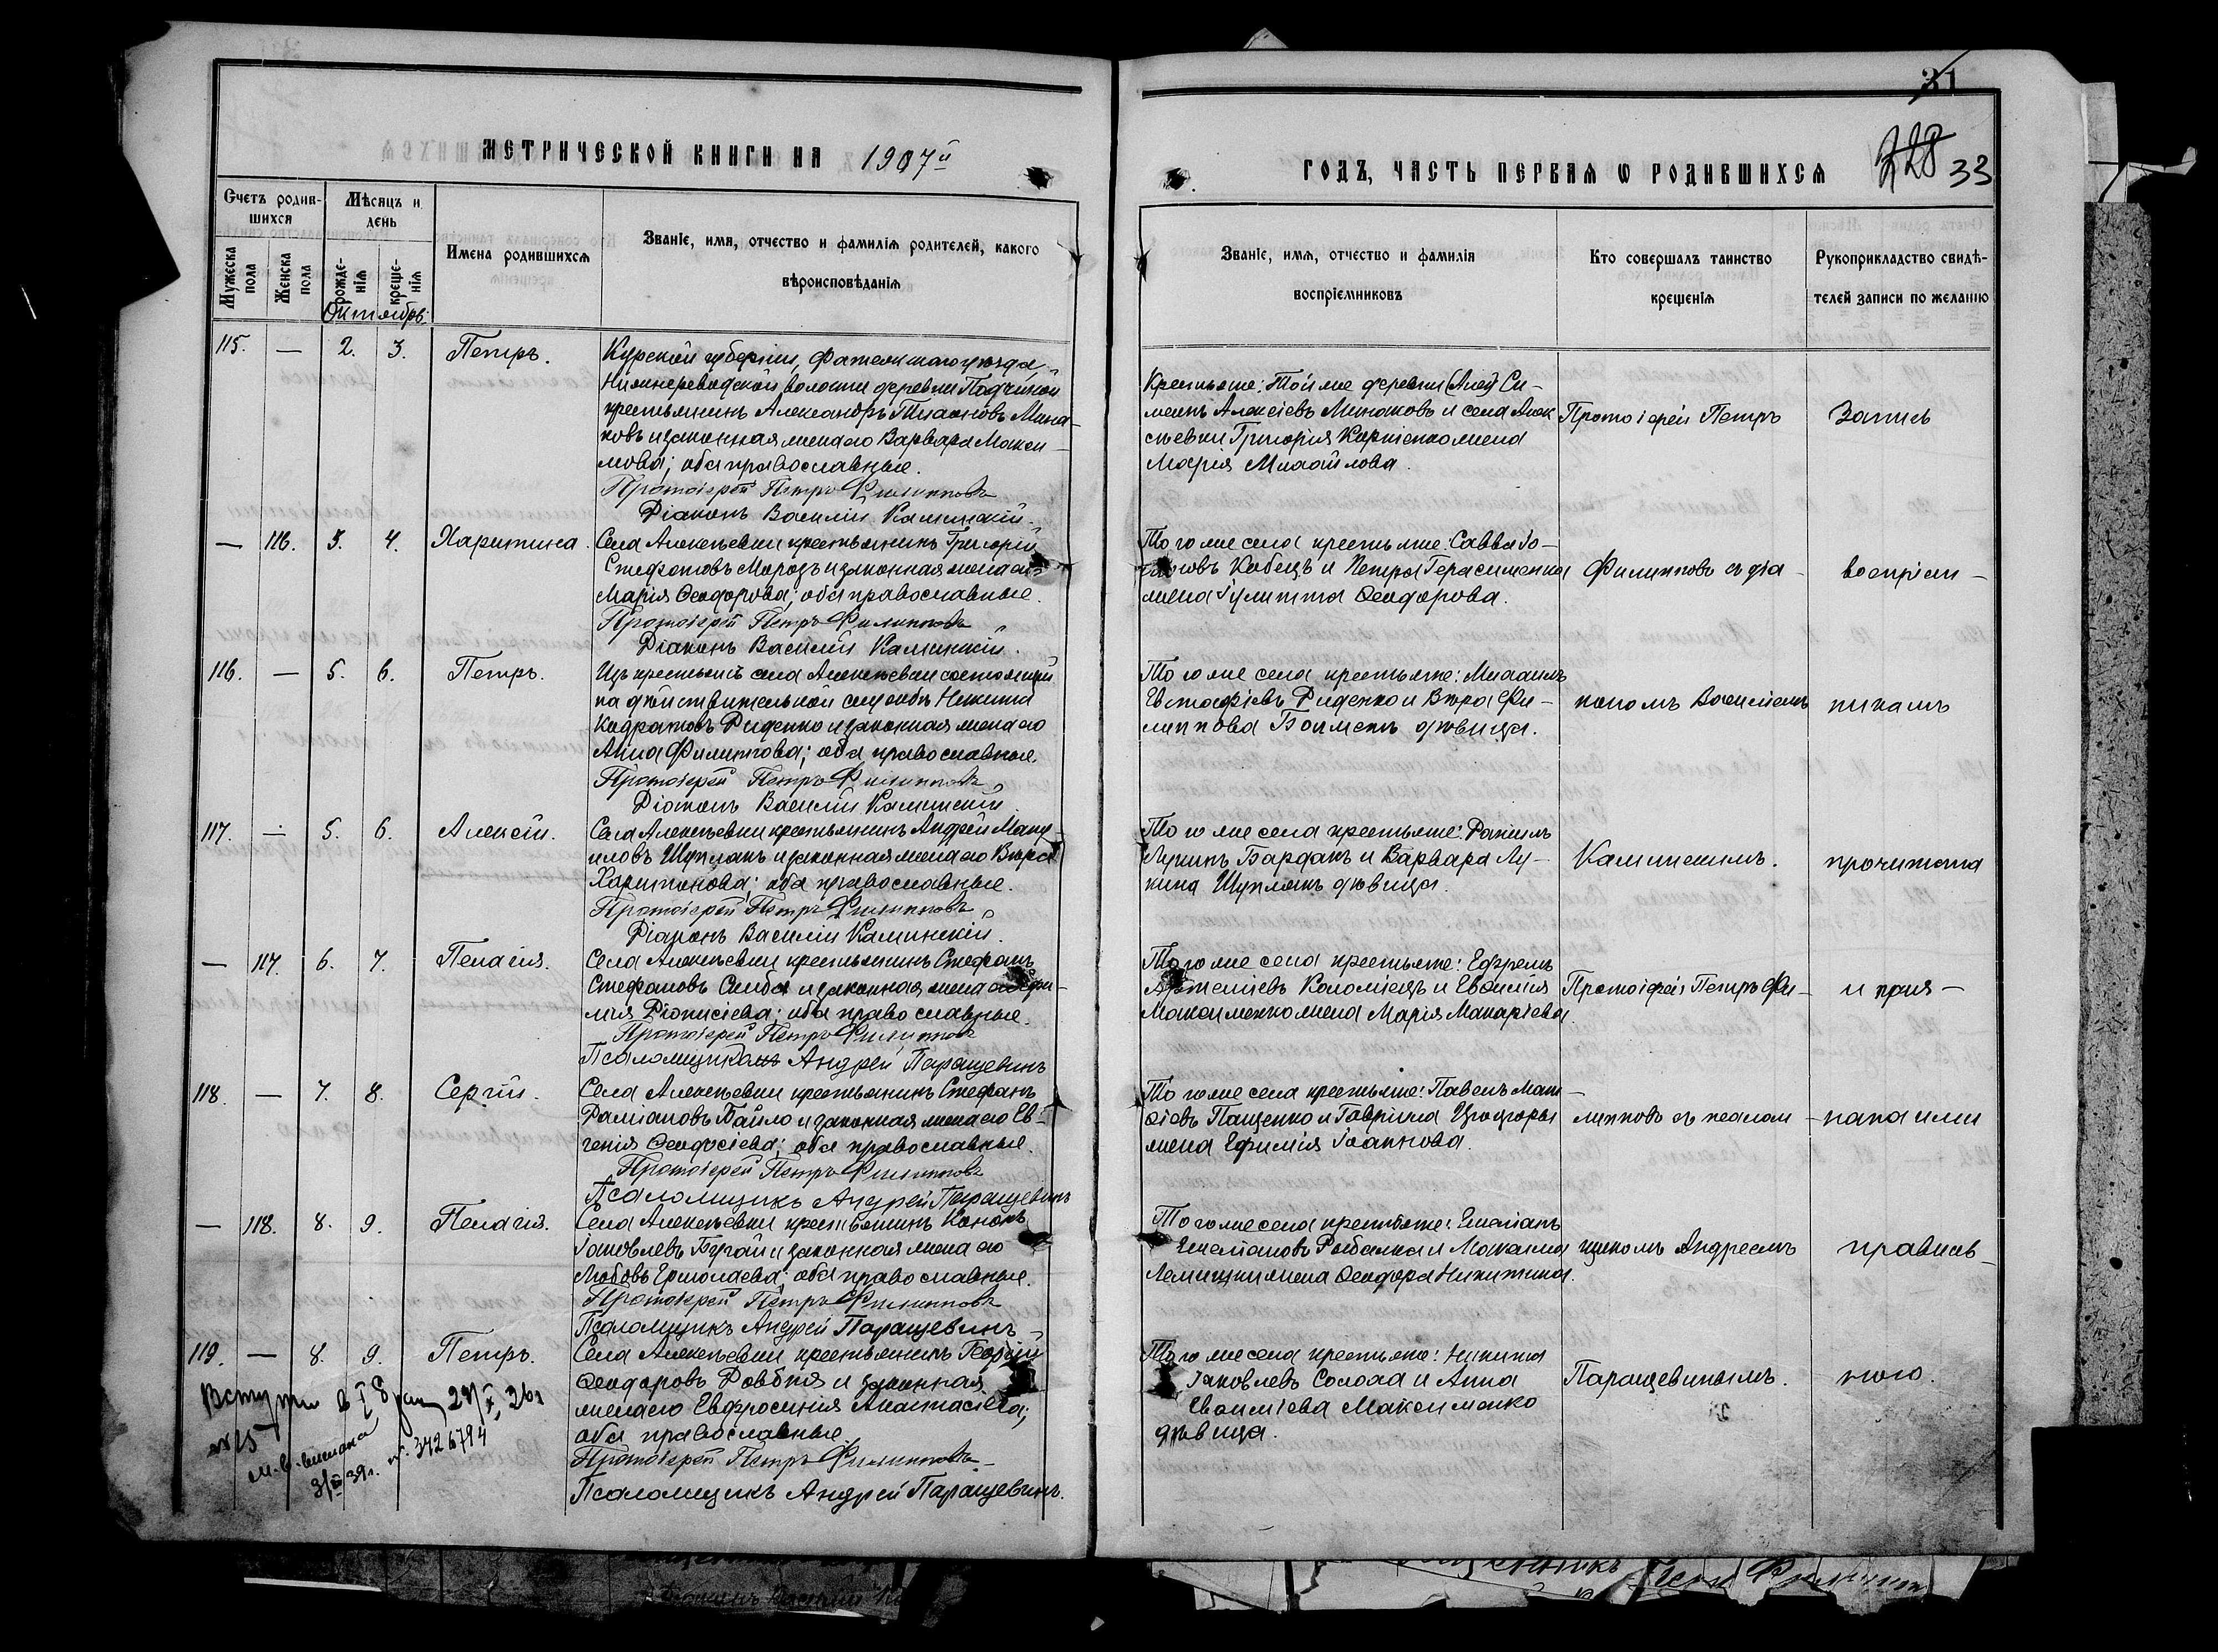 31
МЕТРИЧЕСКОЙ КНИГИ НА 1907й
ГОДЪ, ЧАСТЬ ПЕРВАЯ Ѡ РОДИВШИХСЯ
228 33
Счетъ родив-
шихся
Мѣсяцъ и
день
Мужеска
пола
Женска
пола
рожде-
нія
креще-
нія
Октябрь
Имена родившихся
Званіе, имя, отчество и фамилія родителей, какого
вѣроисповѣданія
Званіе, имя, отчество и фамилія
воспріемниковъ
Кто совершалъ таинство
крещенія
Рукоприкладство свидѣ-
телей записи по желанію
115. — 2. 3. Петръ.
Курской губерніи, Фатежскаго уѣзда
Нижнереводской волости деревни
крестьянинъ Александръ Мина-
ковъ и законная жена его Варвара Макси-
мова; оба православные.
Протоіерей Петръ Филипповъ
Діаконъ Василій Калинскій.
Крестьяне: Той же деревни Си-
меонъ Алексіевъ Минаковъ и села Алек
сѣевки Григорія Карпенко жена
Марія Михайлова.
Протоіерей Петръ
Запись
— 116. 3. 4. Харитина.
Села Алексѣевки крестьянинъ Григорій
Стефановъ Морозъ и законная жена его
Марія Ѳеодорова; оба православные.
Протоіерей Петръ Филипповъ
Діаконъ Василій Калинскій.
Того же села крестьяне: Савва
Кобецъ и Петра Герасименка
жена Іулитта Ѳеодорова.
Филипповъ съ діа-
воспріем-
116. — 5. 6. Петръ.
Изъ крестьянъ села Алексѣевки состоящій
на дѣйствительной службѣ Никита
Кодратовъ Диденко и законная жена его
Анна Филиппова; оба православные.
Протоіерей Петръ Филипповъ
Діаконъ Василій Калинскій.
Того же села крестьяне: Михаилъ
Евстафіевъ Диденко и Вѣра Фи-
липпова дѣвица.
кономъ Василіемъ
никамъ
117. — 5. 6. Алексій.
Села Алексѣевки крестьянинъ Андрей Ману-
иловъ Шуплакъ и законная жена его Вѣра
Харитонова; оба православные.
Протоіерей Петръ Филипповъ
Діаконъ Василій Калинскій.
Того же села крестьяне: Даніилъ
Лукинъ Бардакъ и Варвара Лу-
кина Шуплакъ дѣвица.
Калинскимъ.
прочитана
— 117. 6. 7. Пелагія.
Села Алексѣевки крестьянинъ Стефанъ
Стефановъ и законная жена его
Діонисіева; оба православные.
Протоіерей Петръ Филипповъ
Псаломщикъ Андрей Паращевинъ
Того же села крестьяне: Ефремъ
Коломіецъ и Евѳимія
Максименко жена Марія Макаріева.
Протоіерей Петръ Фи-
и приз-
118. — 7. 8. Сергій.
Села Алексѣевки крестьянинъ Стефанъ
Даміановъ Байло и законная жена его Ев-
генія Ѳеодосіева; оба православные.
Протоіерей Петръ Филипповъ
Псаломщикъ Андрей Паращевинъ
Того же села крестьяне: Павелъ Мат-
ѳіевъ Пащенко и Гавріила
жена Ефимія Іоаннова.
липповъ съ псалом-
нана ими
— 118. 8. 9. Пелагія.
Села Алексѣевки крестьянинъ Кононъ
Іаковлевъ Бугай и законная жена его
Любовь Ермолаева; оба православные.
Протоіерей Петръ Филипповъ
Псаломщикъ Андрей Паращевинъ
Того же села крестьяне: Емеліанъ
Емеліановъ Рыбалка и
жена Ѳеодора Никитина.
щикомъ Андреемъ
правиль-
119. — 8. 9. Петръ.
Села Алексѣевки крестьянинъ Георгій
Ѳеодоровъ и законная
жена его Евфросинія Анастасіева;
оба православные.
Протоіерей Петръ Филипповъ
Псаломщикъ Андрей Паращевинъ.
Того же села крестьяне: Никита
Іаковлевъ Солоха и Анна
Евѳиміева Максименко
дѣвица.
Паращевинымъ.
ною.